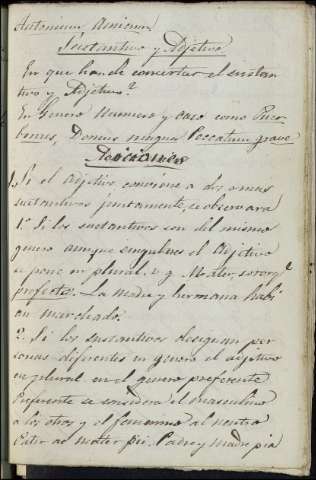 Antonium Amicum
Sustantivo y Adjetivo
En que han de concertar el sustan
tivo y Adjetivo?
En Genero Numero y caso como Puer
bonus, Domus magna Peccatum grave
Adiciones
1. Si el Adjetivo conviene a dos o mas
sustantivos juntamente, se observará
1.° Si los sustantivos son del mismo
genero aunque singulares el Adjetivo
se pone en plural. v. g. Mater, sororq.e
profectæ. La madre y hermana habi
an marchado.
2. Si los sustantivos designan per
sonas diferentes en genero el adjetivo
en plural en el genero preferente
Preferente se considera el masculino
a los otros y el femenino al neutro
Pater ac Mater pii. Padre y madre pia